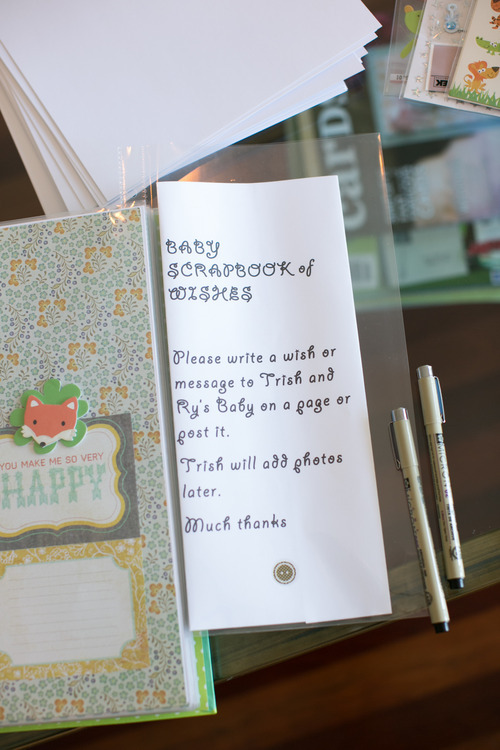 BABY
SCRAPBOOK of
WISHES
Please write a wish or
message to Trish and
Ry's Baby on a page or
post it.
Trish will add photos
later.
Much thanks
YOU MAKE ME SO VERY
HAPPY
cards
MICRON